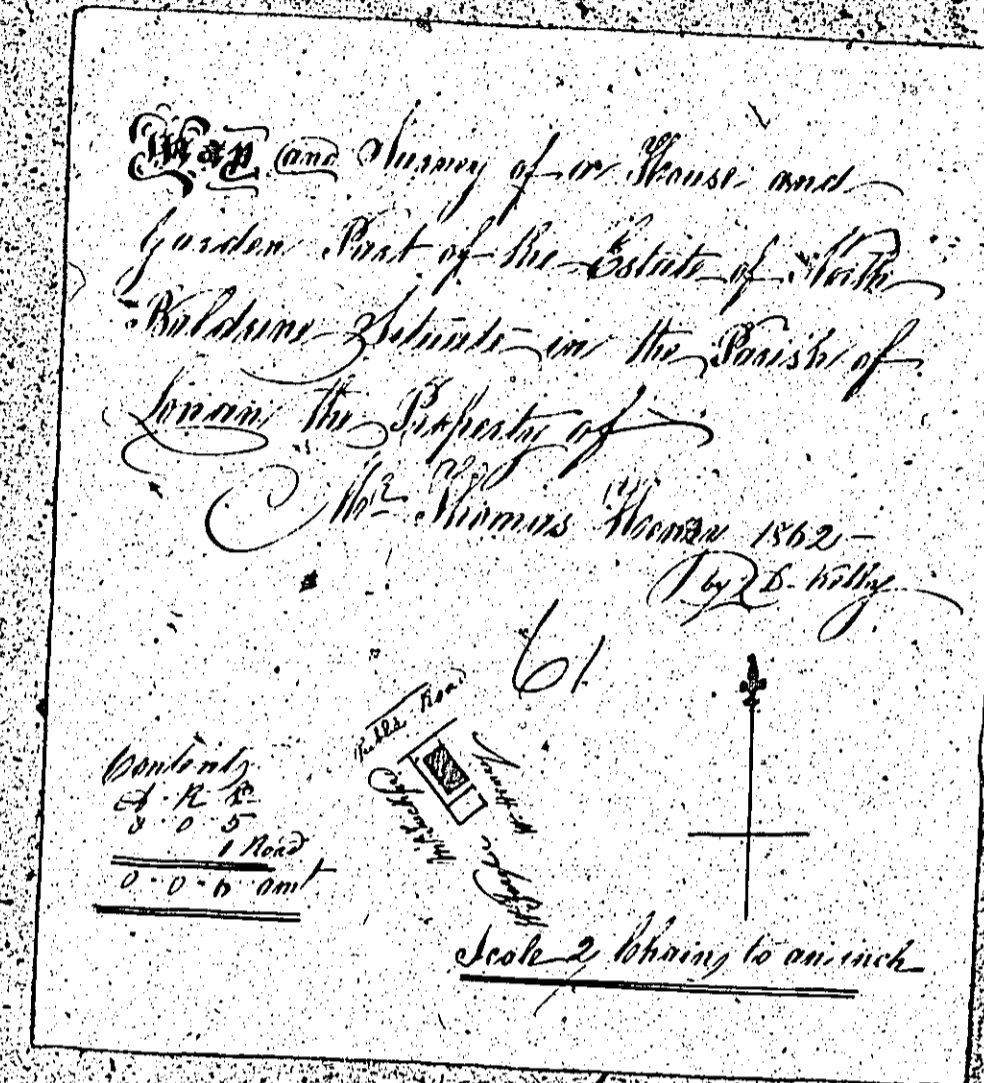 Map and Survey of a House and
Garden Part of the Estate of North
Baldrine Situate in the Parish of
Lonan the Property of
Mr Thomas 1862 –
by D. Kelly
61
Public Road
Contents
A · R P
0 · 0 · 5
1 Road
0 · 0 · 6 amt
Scale 2 Chains to an inch